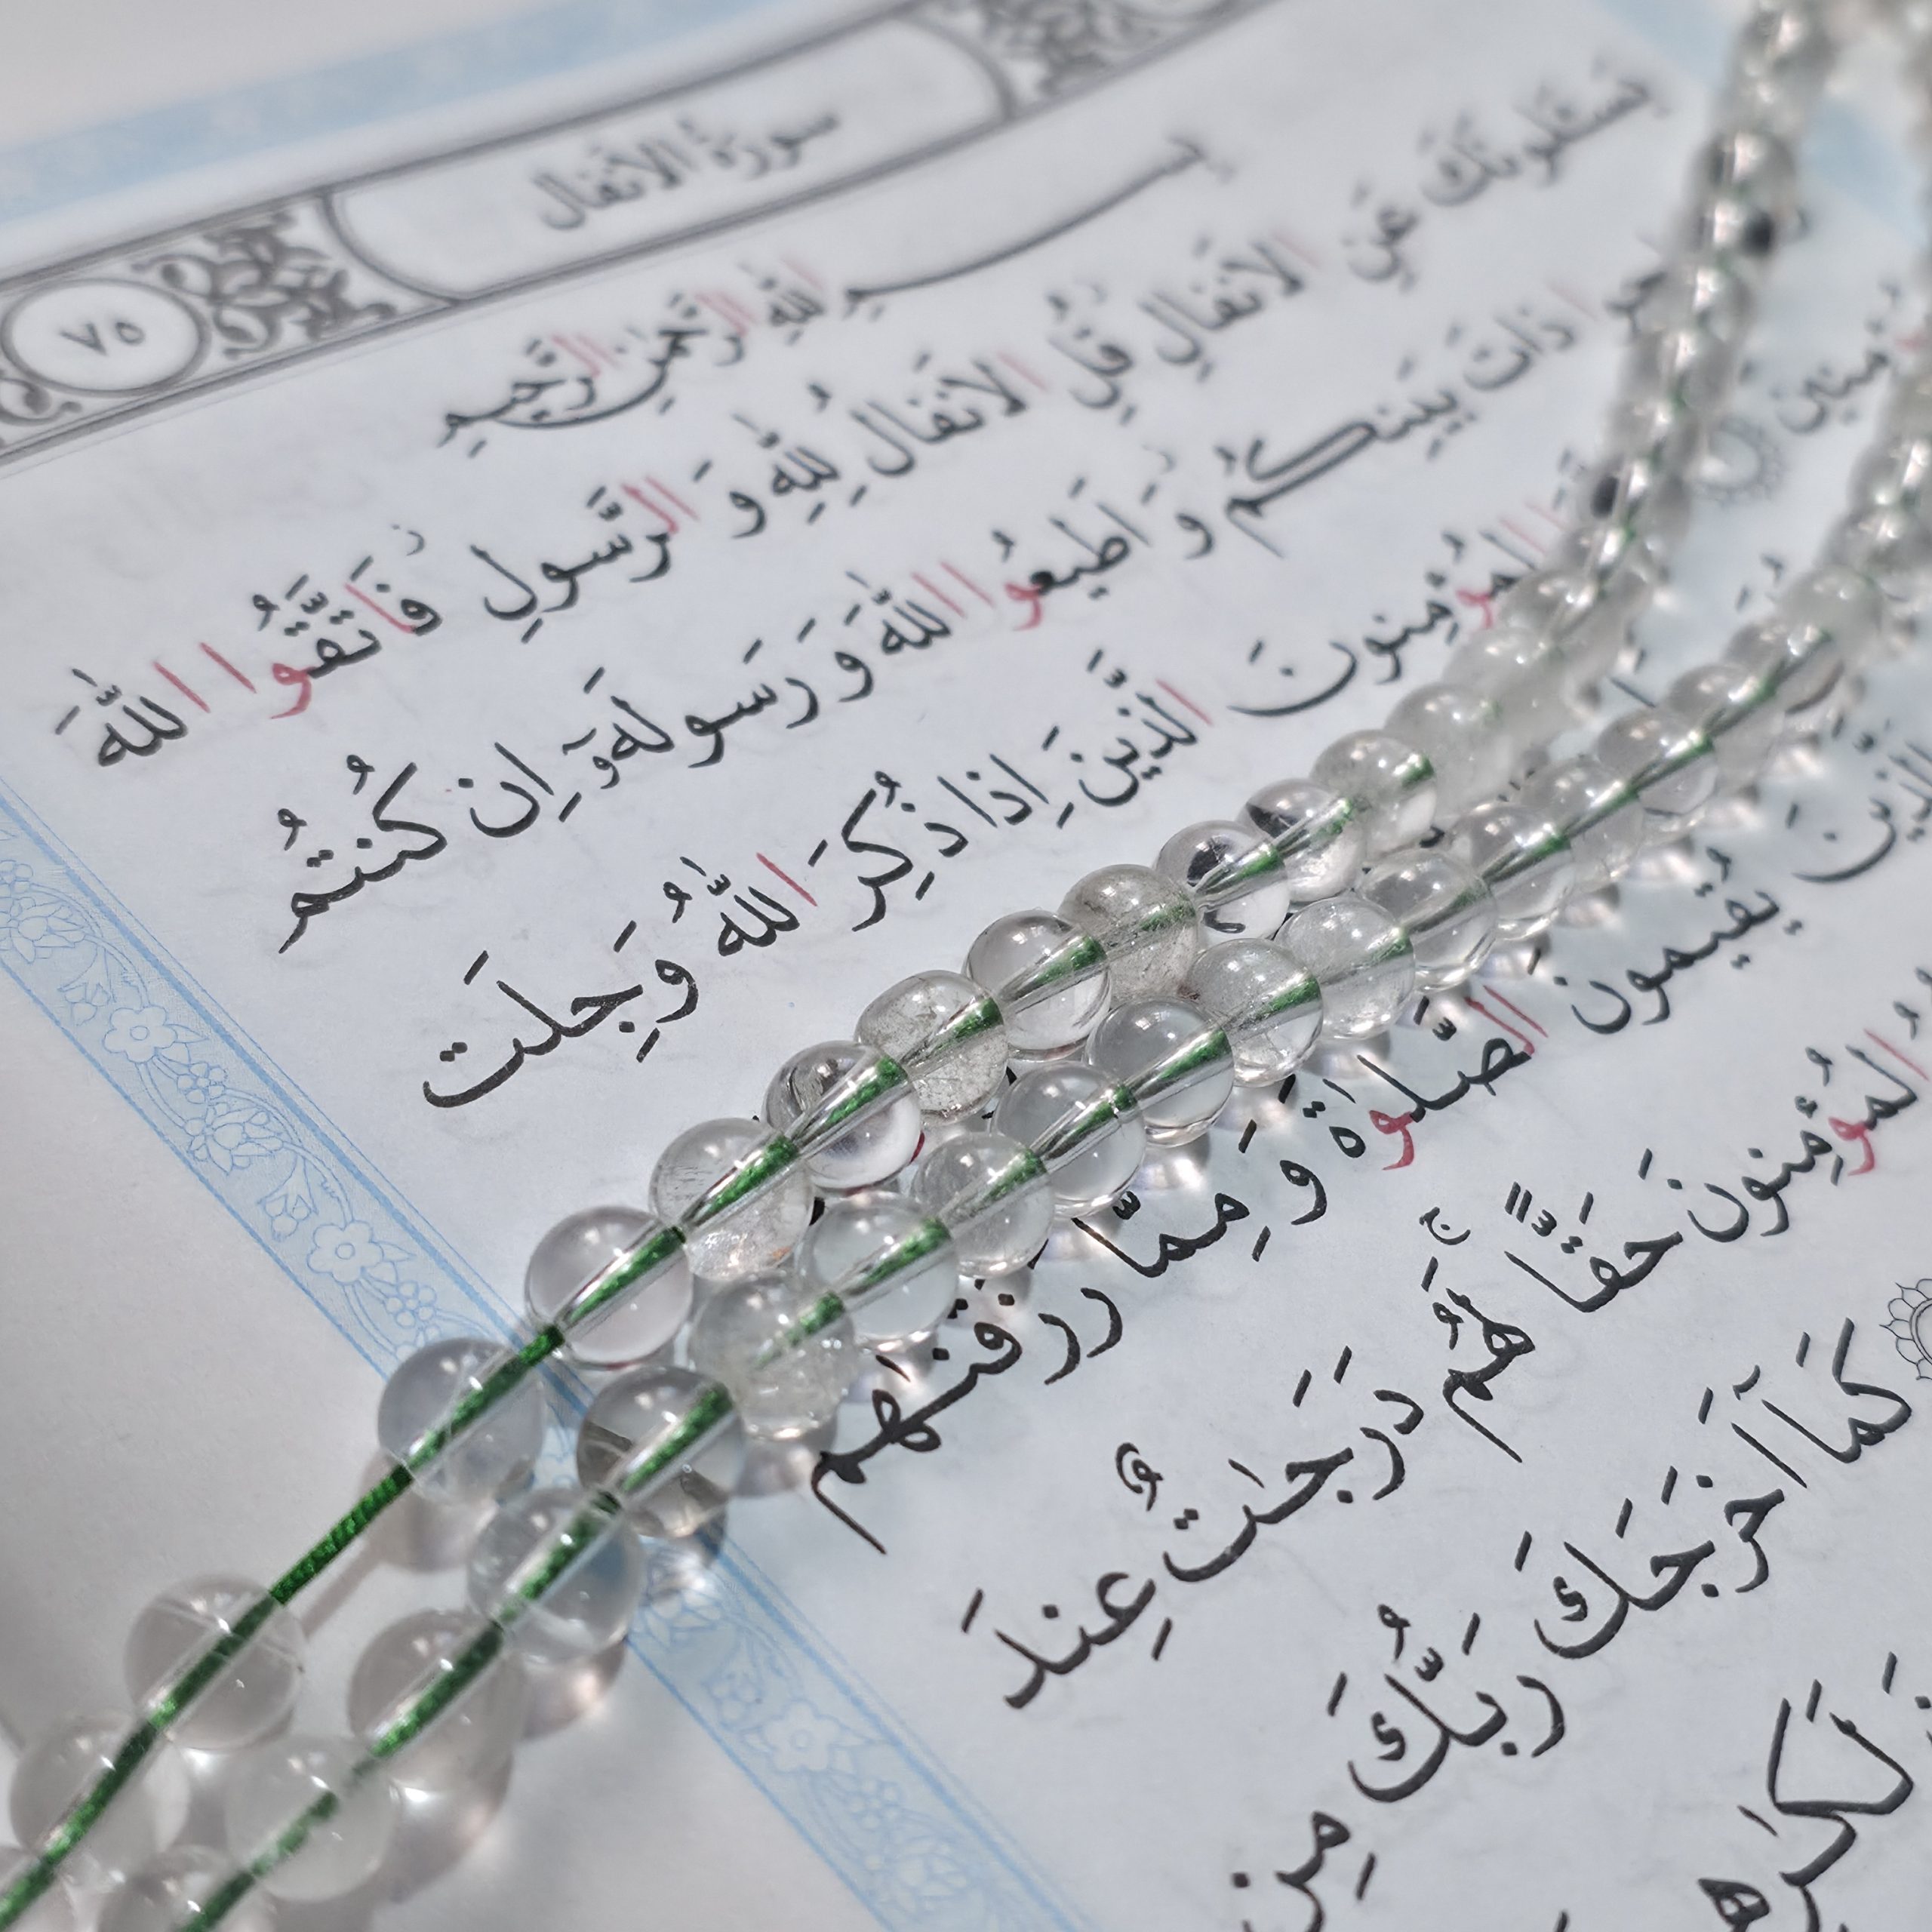 سورة الانفال
٧٥
بسم الله الرحمن الرحيم
يَسـَٔلونَكَ عَنِ الاَنفالِ قُلِ الاَنفالُ لِلّٰهِ وَ الرَّسولِ فَاتَّقُوا اللّٰهَ
ذاتَ بَينِكُم وَ اَطيعُوا اللّٰهَ وَ رَسولَهۥ اِن كُنتُم
مُؤمِنينَ
المُؤمِنونَ الَّذينَ اِذا ذُكِرَ اللّٰهُ وَجِلَت
الَّذينَ يُقيمونَ الصَّلوٰةَ وَ مِمّا رَزَقنٰهُم
المُؤمِنونَ حَقًّا ۚ لَهُم دَرَجٰتٌ عِندَ
كَما اَخرَجَكَ رَبُّكَ مِن